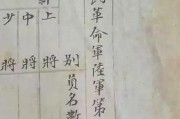 民革命軍陸軍第
別員名數
上將
中將
少將